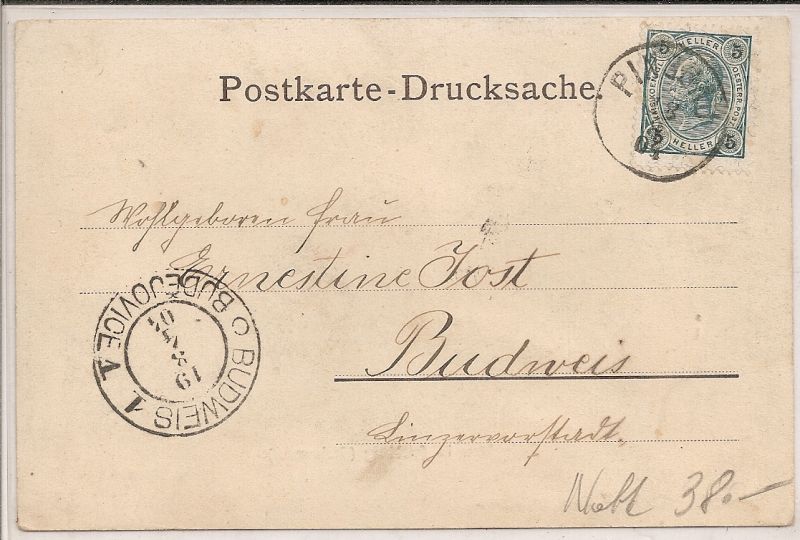 Postkarte-Drucksache.
5 HELLER 5
5 HELLER 5
Wohlgeboren Frau
Ernestine Jost
Budweis
Linzervorstadt.
BUDWEIS 1 BUDĚJOVICE 1
19
8
04
04
38.-